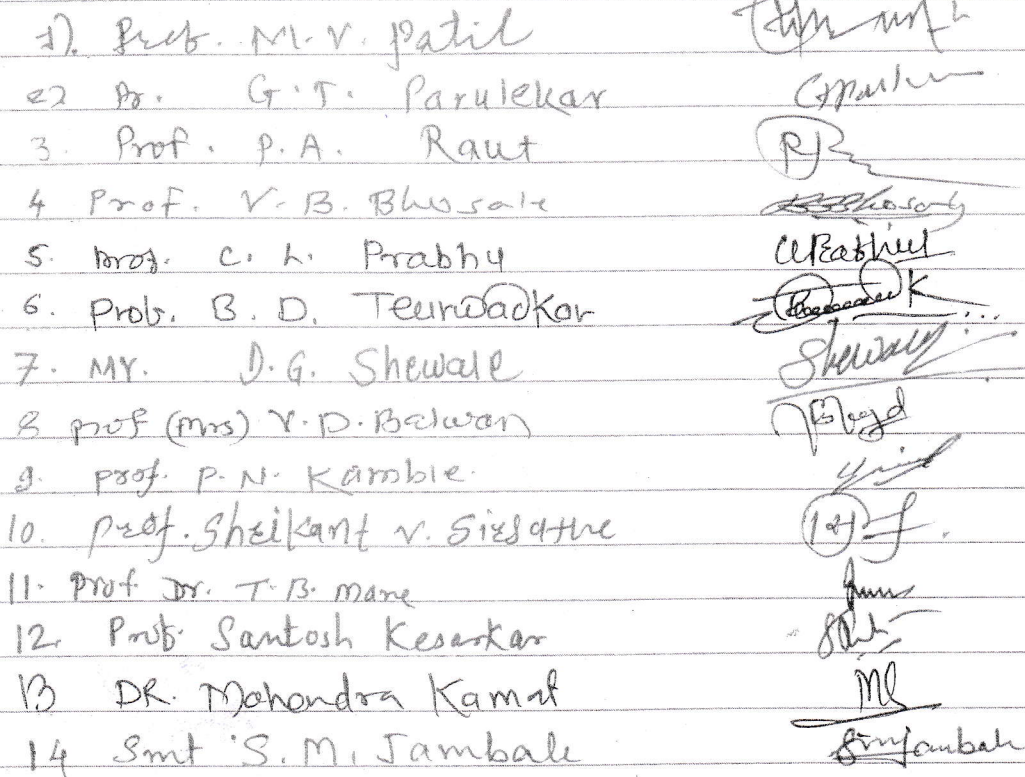 1). Prof. M. V. Patil
2) Dr. G. T. Parulekar
3. Prof. P. A. Raut
4 Prof. V. B. Bhosale
5. Prof. C. L. Prabhu
6. Prof. B. D. Teurwadkar
7. Mr. D. G. Shewale Shewale
8 prof (Mrs) V. D. Balwan
9. Prof. P. N. Kamble.
10. Prof. Shrikant V. Sirsathe
11. Prof Dr. T. B. Mane
12. Prof. Santosh Kesarkar
13 DR. Mahendra Kamat
14 Smt S. M. Jambale Smjambale